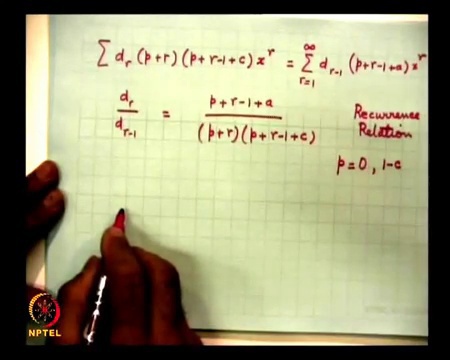 ∑ d_r (p+r) (p+r-1+c) x^r = ∑_{r=1}^{∞} d_{r-1} (p+r-1+a) x^r
d_r / d_{r-1} = (p+r-1+a) / ((p+r)(p+r-1+c))
Recurrence
Relation
p = 0, 1-c
NPTEL